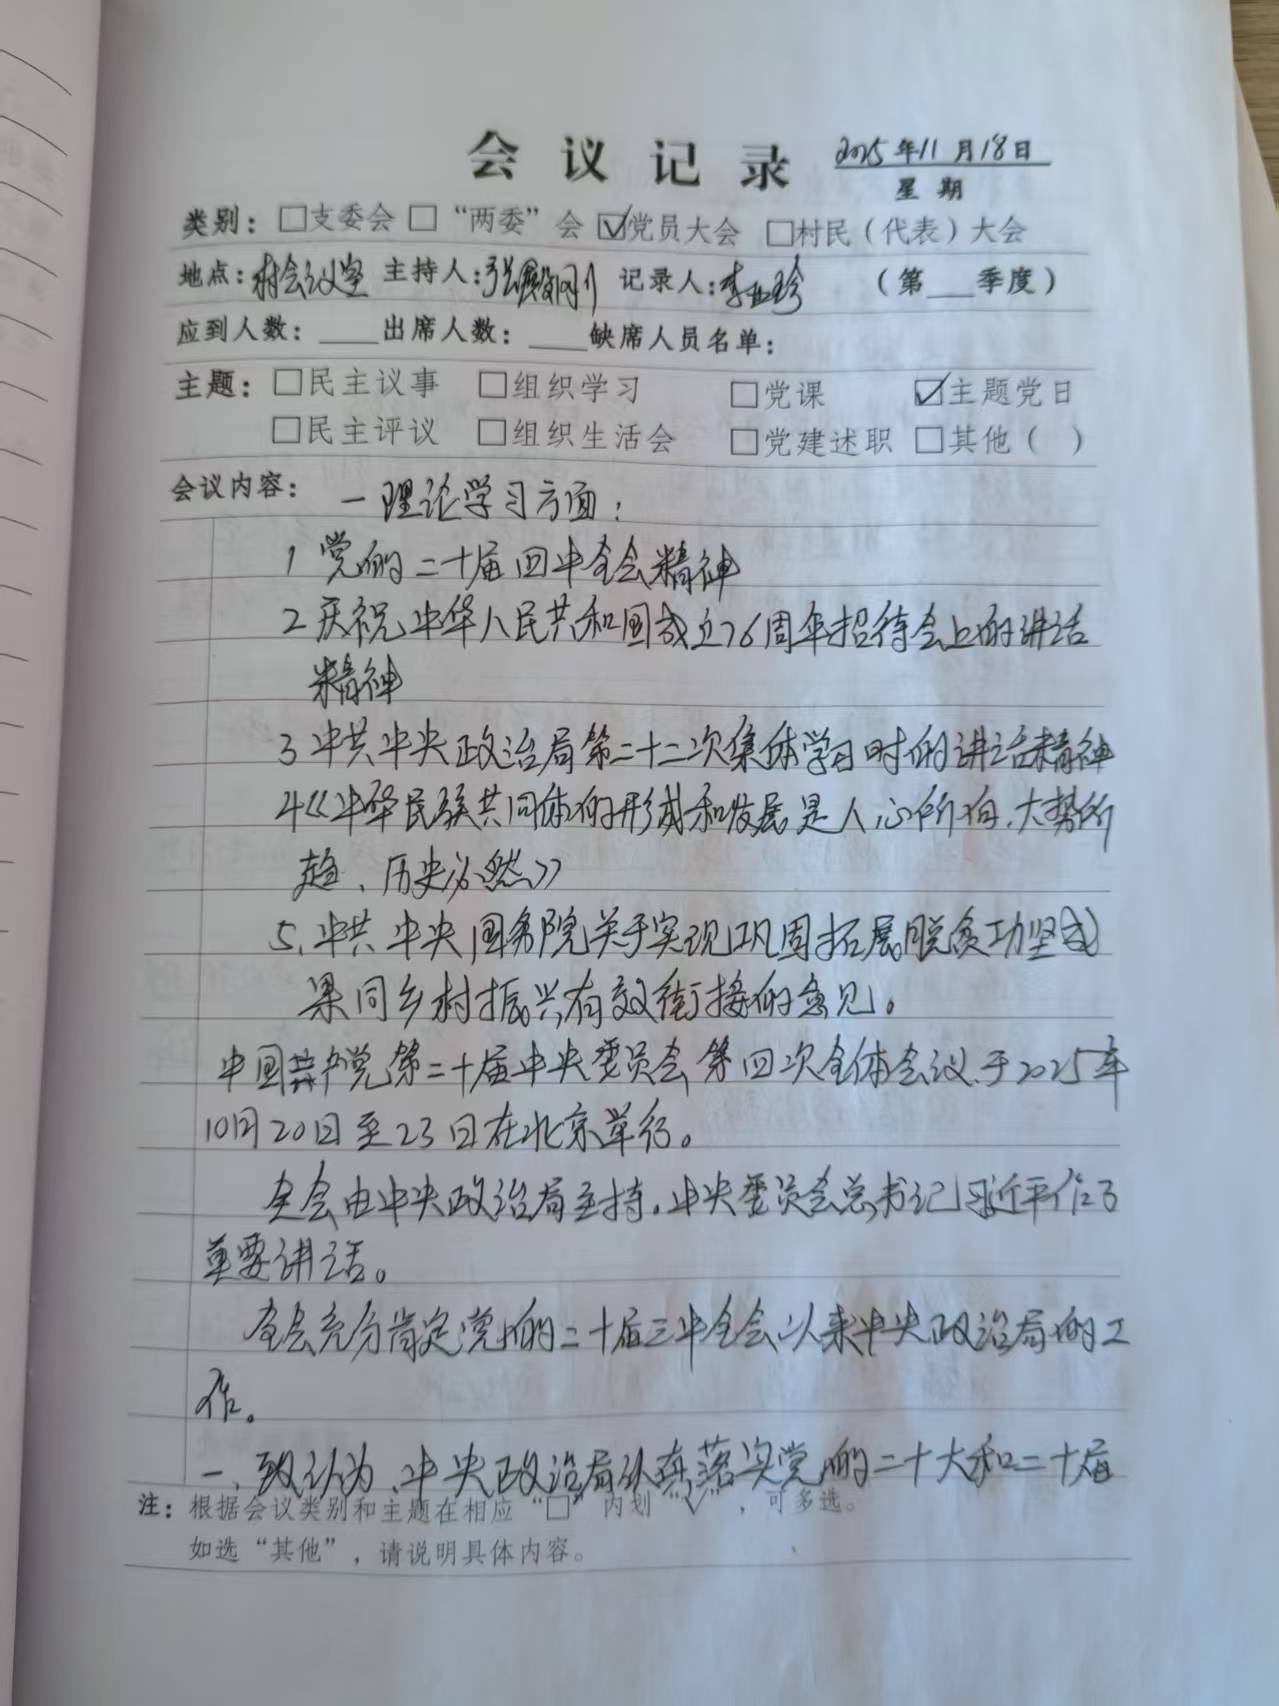 会议记录 2025年11月18日
星期
类别：□支委会 □“两委”会 ☑党员大会 □村民（代表）大会
地点：村会议室 主持人：张 记录人：李 珍 （第___季度）
应到人数：____出席人数：____缺席人员名单：
主题：□民主议事 □组织学习 □党课 ☑主题党日
□民主评议 □组织生活会 □党建述职 □其他（ ）
会议内容： 一理论学习方面：
1 党的二十届四中全会精神
2 庆祝中华人民共和国成立76周年招待会上的讲话
精神
3 中共中央政治局第二十二次集体学习时的讲话精神
4《中华民族共同体的形成和发展是人心所向、大势所
趋、历史必然》
5、中共中央国务院关于实现巩固拓展脱贫功坚成
果同乡村振兴有效衔接的意见。
中国共产党第二十届中央委员会第四次全体会议、于2025年
10月20日至23日在北京举行。
全会由中央政治局主持。中央委员会总书记习近平作了
重要讲话。
全会充分肯定党的二十届三中全会以来中央政治局的工
作。
一、致认为、中央政治局认真落实党的二十大和二十届
注：根据会议类别和主题在相应“□”内划“√”，可多选。
如选“其他”，请说明具体内容。